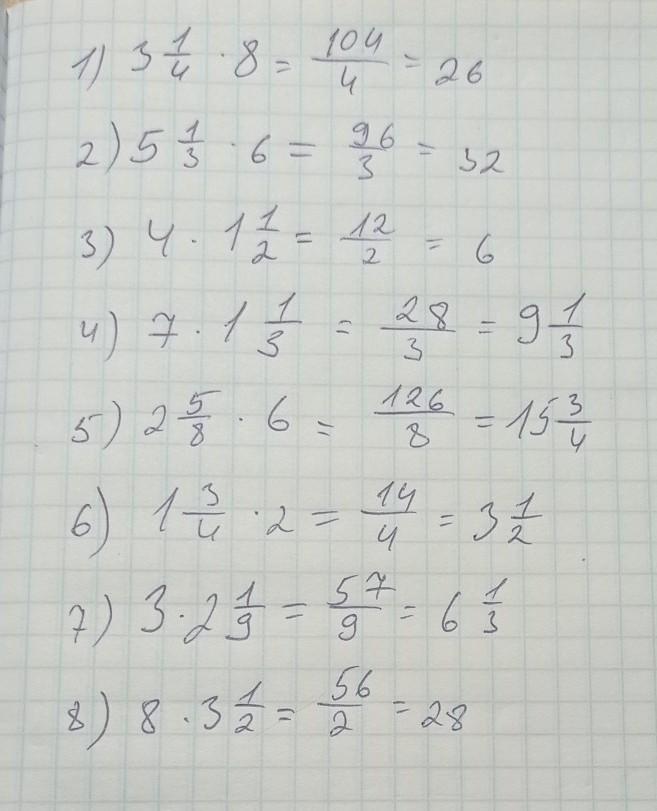 1) 3 1/4 · 8 = 104/4 = 26
2) 5 1/3 · 6 = 96/3 = 32
3) 4 · 1 1/2 = 12/2 = 6
4) 7 · 1 1/3 = 28/3 = 9 1/3
5) 2 5/8 · 6 = 126/8 = 15 3/4
6) 1 3/4 · 2 = 14/4 = 3 1/2
7) 3 · 2 1/9 = 57/9 = 6 1/3
8) 8 · 3 1/2 = 56/2 = 28